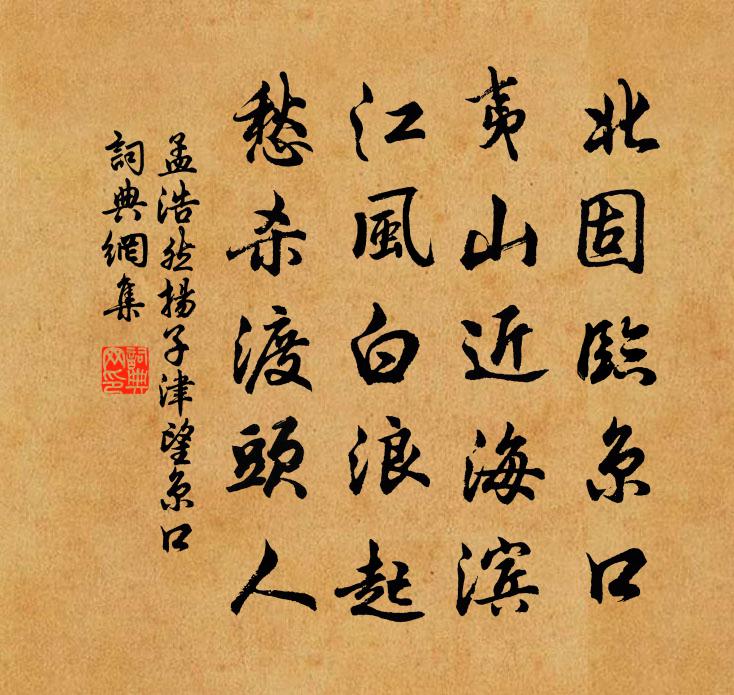 北固臨京口
夷山近海滨
江風白浪起
愁杀渡頭人
孟浩然揚子津望京口
詞典網集
詞典網印